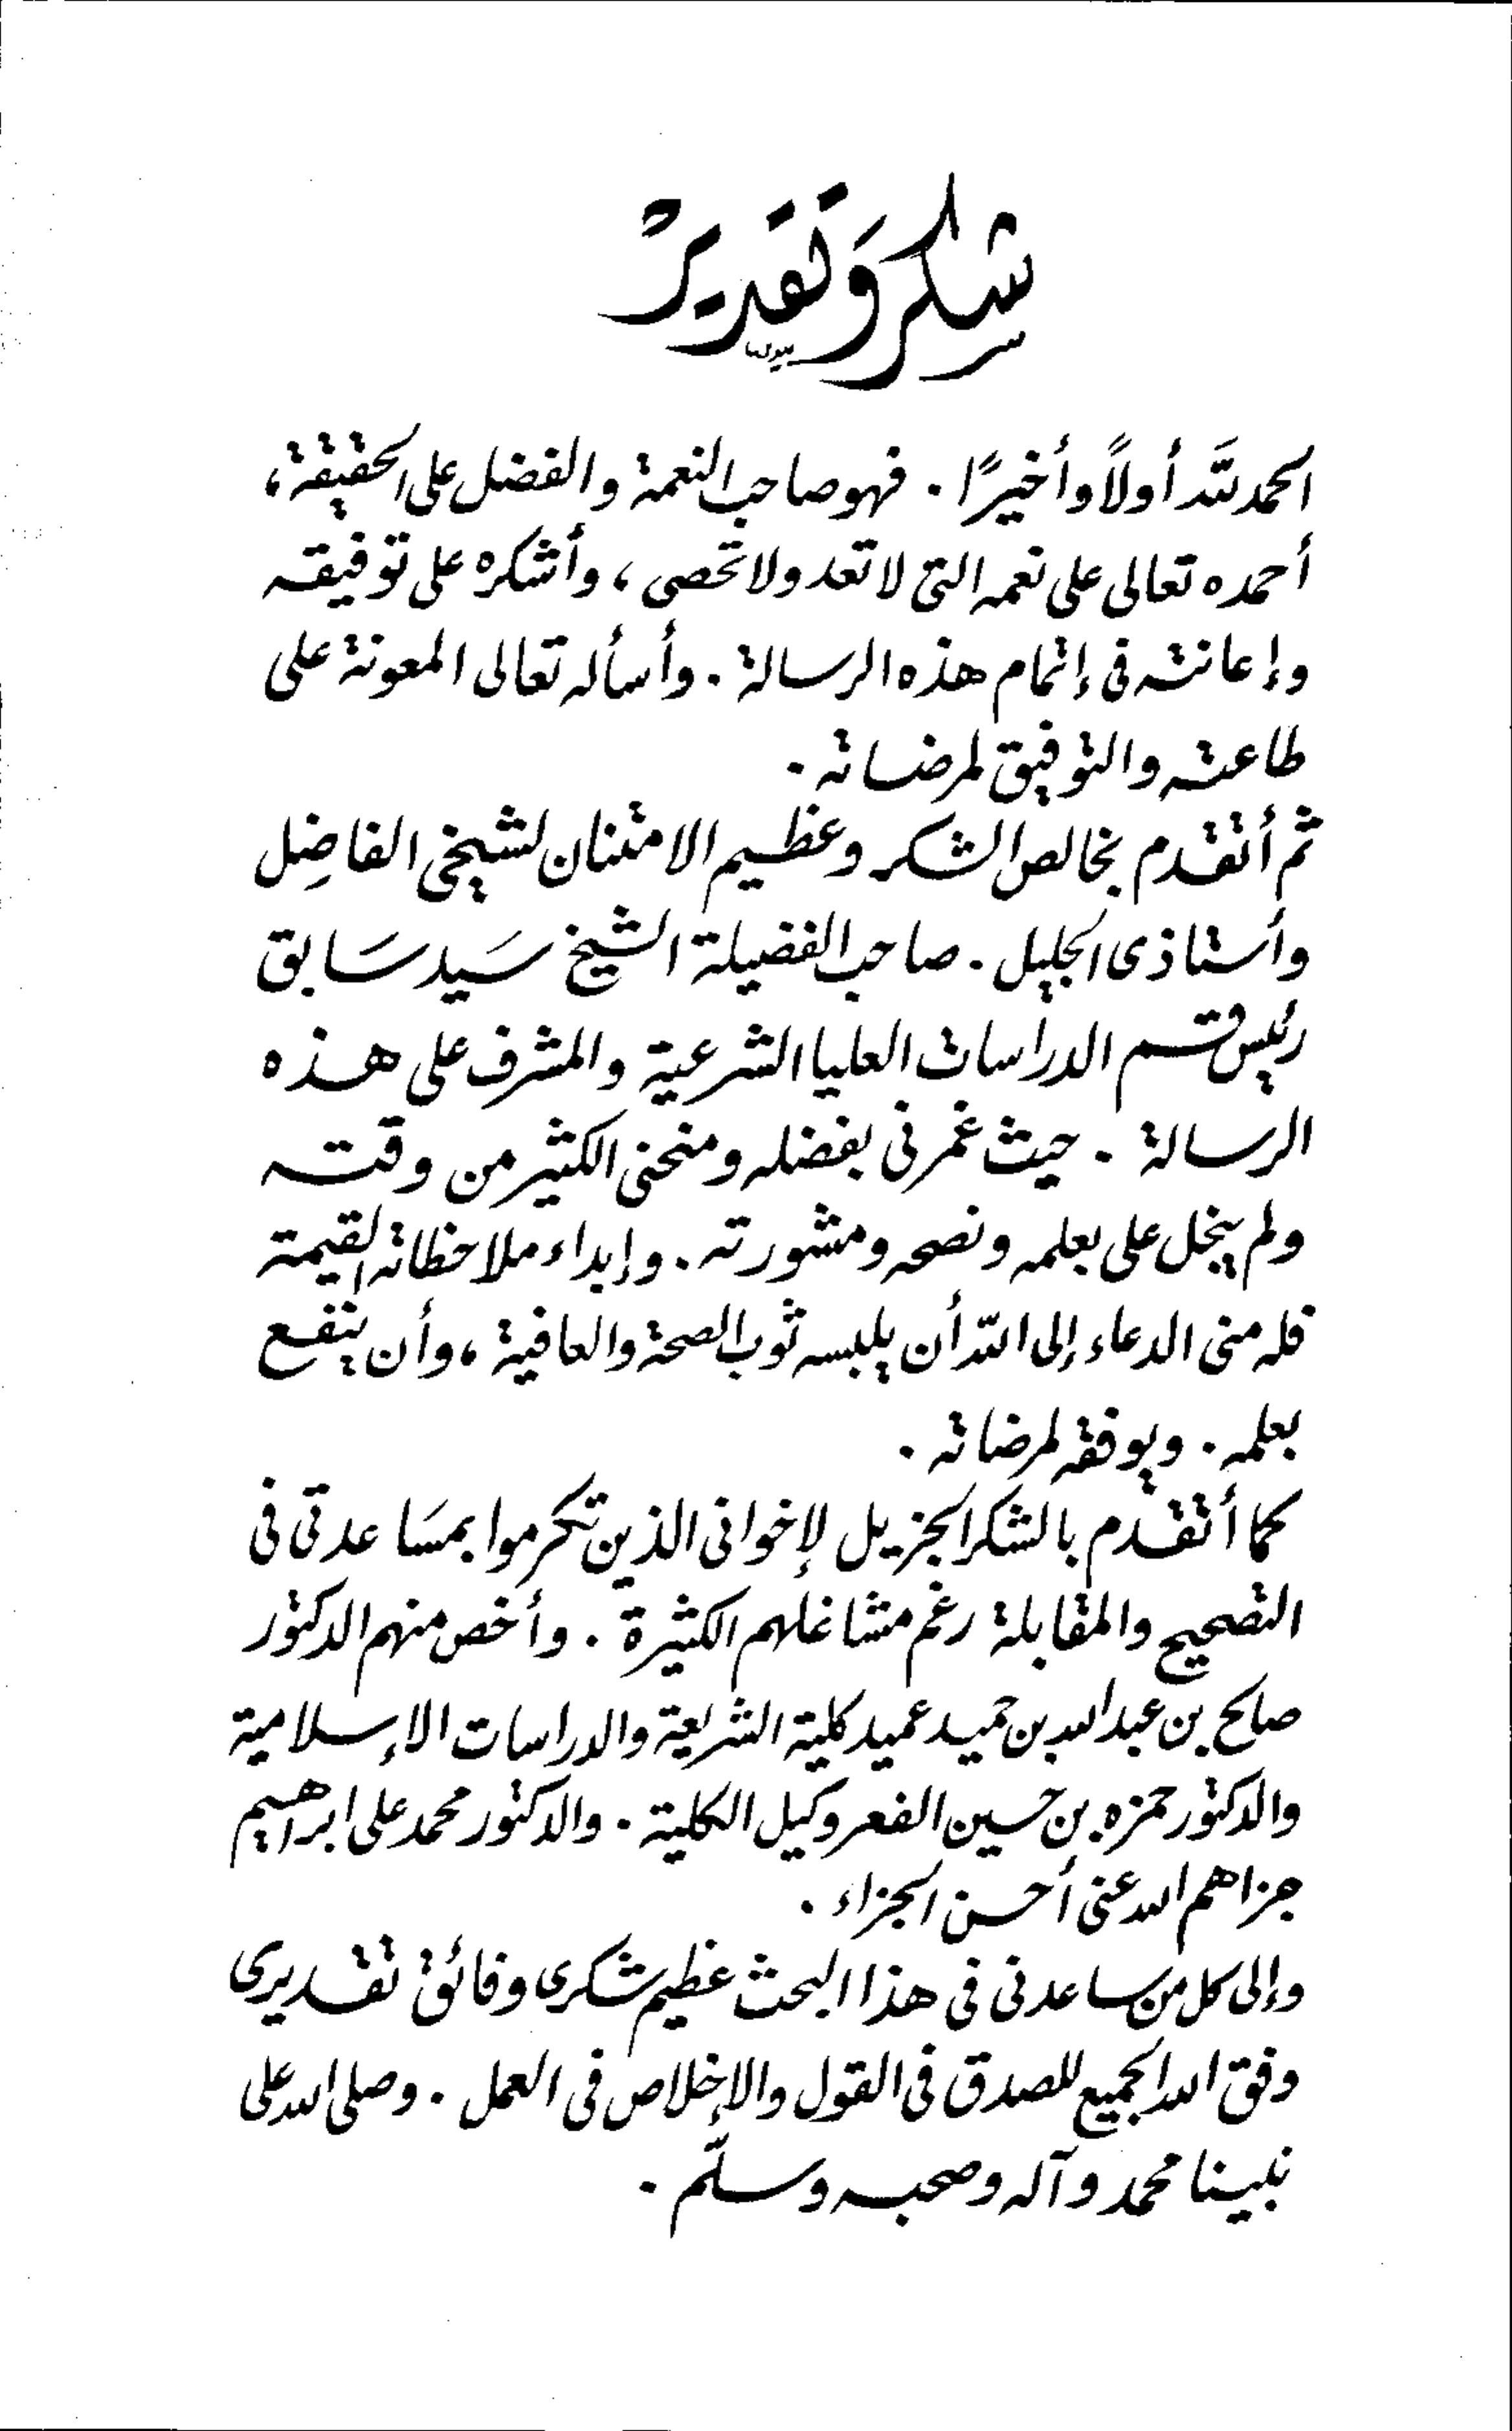 شكر وَتقديرٌ
الحمد للَّه أولاً وأخيرًا . فهو صاحب النعمة والفضل على الحقيقة ،
أحمده تعالى على نعمه التى لا تعد ولا تحصى ، وأشكره على توفيقه
وإعانته فى إتمام هذه الرسالة . وأسأله تعالى المعونة على
طاعته والتوفيق لمرضاته .
ثم أتقدم بخالص الشكر وعظيم الامتنان لشيخى الفاضِل
وأستاذى الجليل . صاحب الفضيلة الشيخ سَيد سَابق
رئيس قسم الدراسات العليا الشرعية والمشرف على هذه
الرسالة . حيث غمرنى بفضله ومنحنى الكثير من وقته
ولم يبخل على بعلمه ونصحه ومشورته . وإبداء ملاحظاته القيمة
فله منى الدعاء إلى اللّه أن يلبسه ثوب الصحة والعافية ، وأن ينفع
بعلمه . ويوفقه لمرضاته .
كما أتقدم بالشكر الجزيل لإخوانى الذين تكرموا بمسَاعدتى فى
التصحيح والمقابلة رغم مشاغلهم الكثيرة . وأخص منهم الدكتور
صالح بن عبد الله بن حميد عميد كلية الشريعة والدراسات الإسلامية
والدكتور حمزه بن حسين الفعر وكيل الكلية . والدكتور محمد على ابراهيم
جزاهم الله عنى أحسن الجزاء .
وإلى كل من ساعدنى فى هذا البحث عظيم شكرى وفائق تقديرى
وفق الله الجميع للصدق فى القول والإخلاص فى العمل . وصلى الله على
نبينا محمد وآله وصحبه وسلّم .